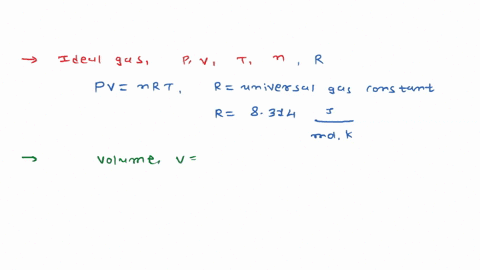 → Ideal gas, P, V, T, n, R
PV = nRT, R = universal gas constant
R = 8.314 J / mol. K
→ Volume, V =